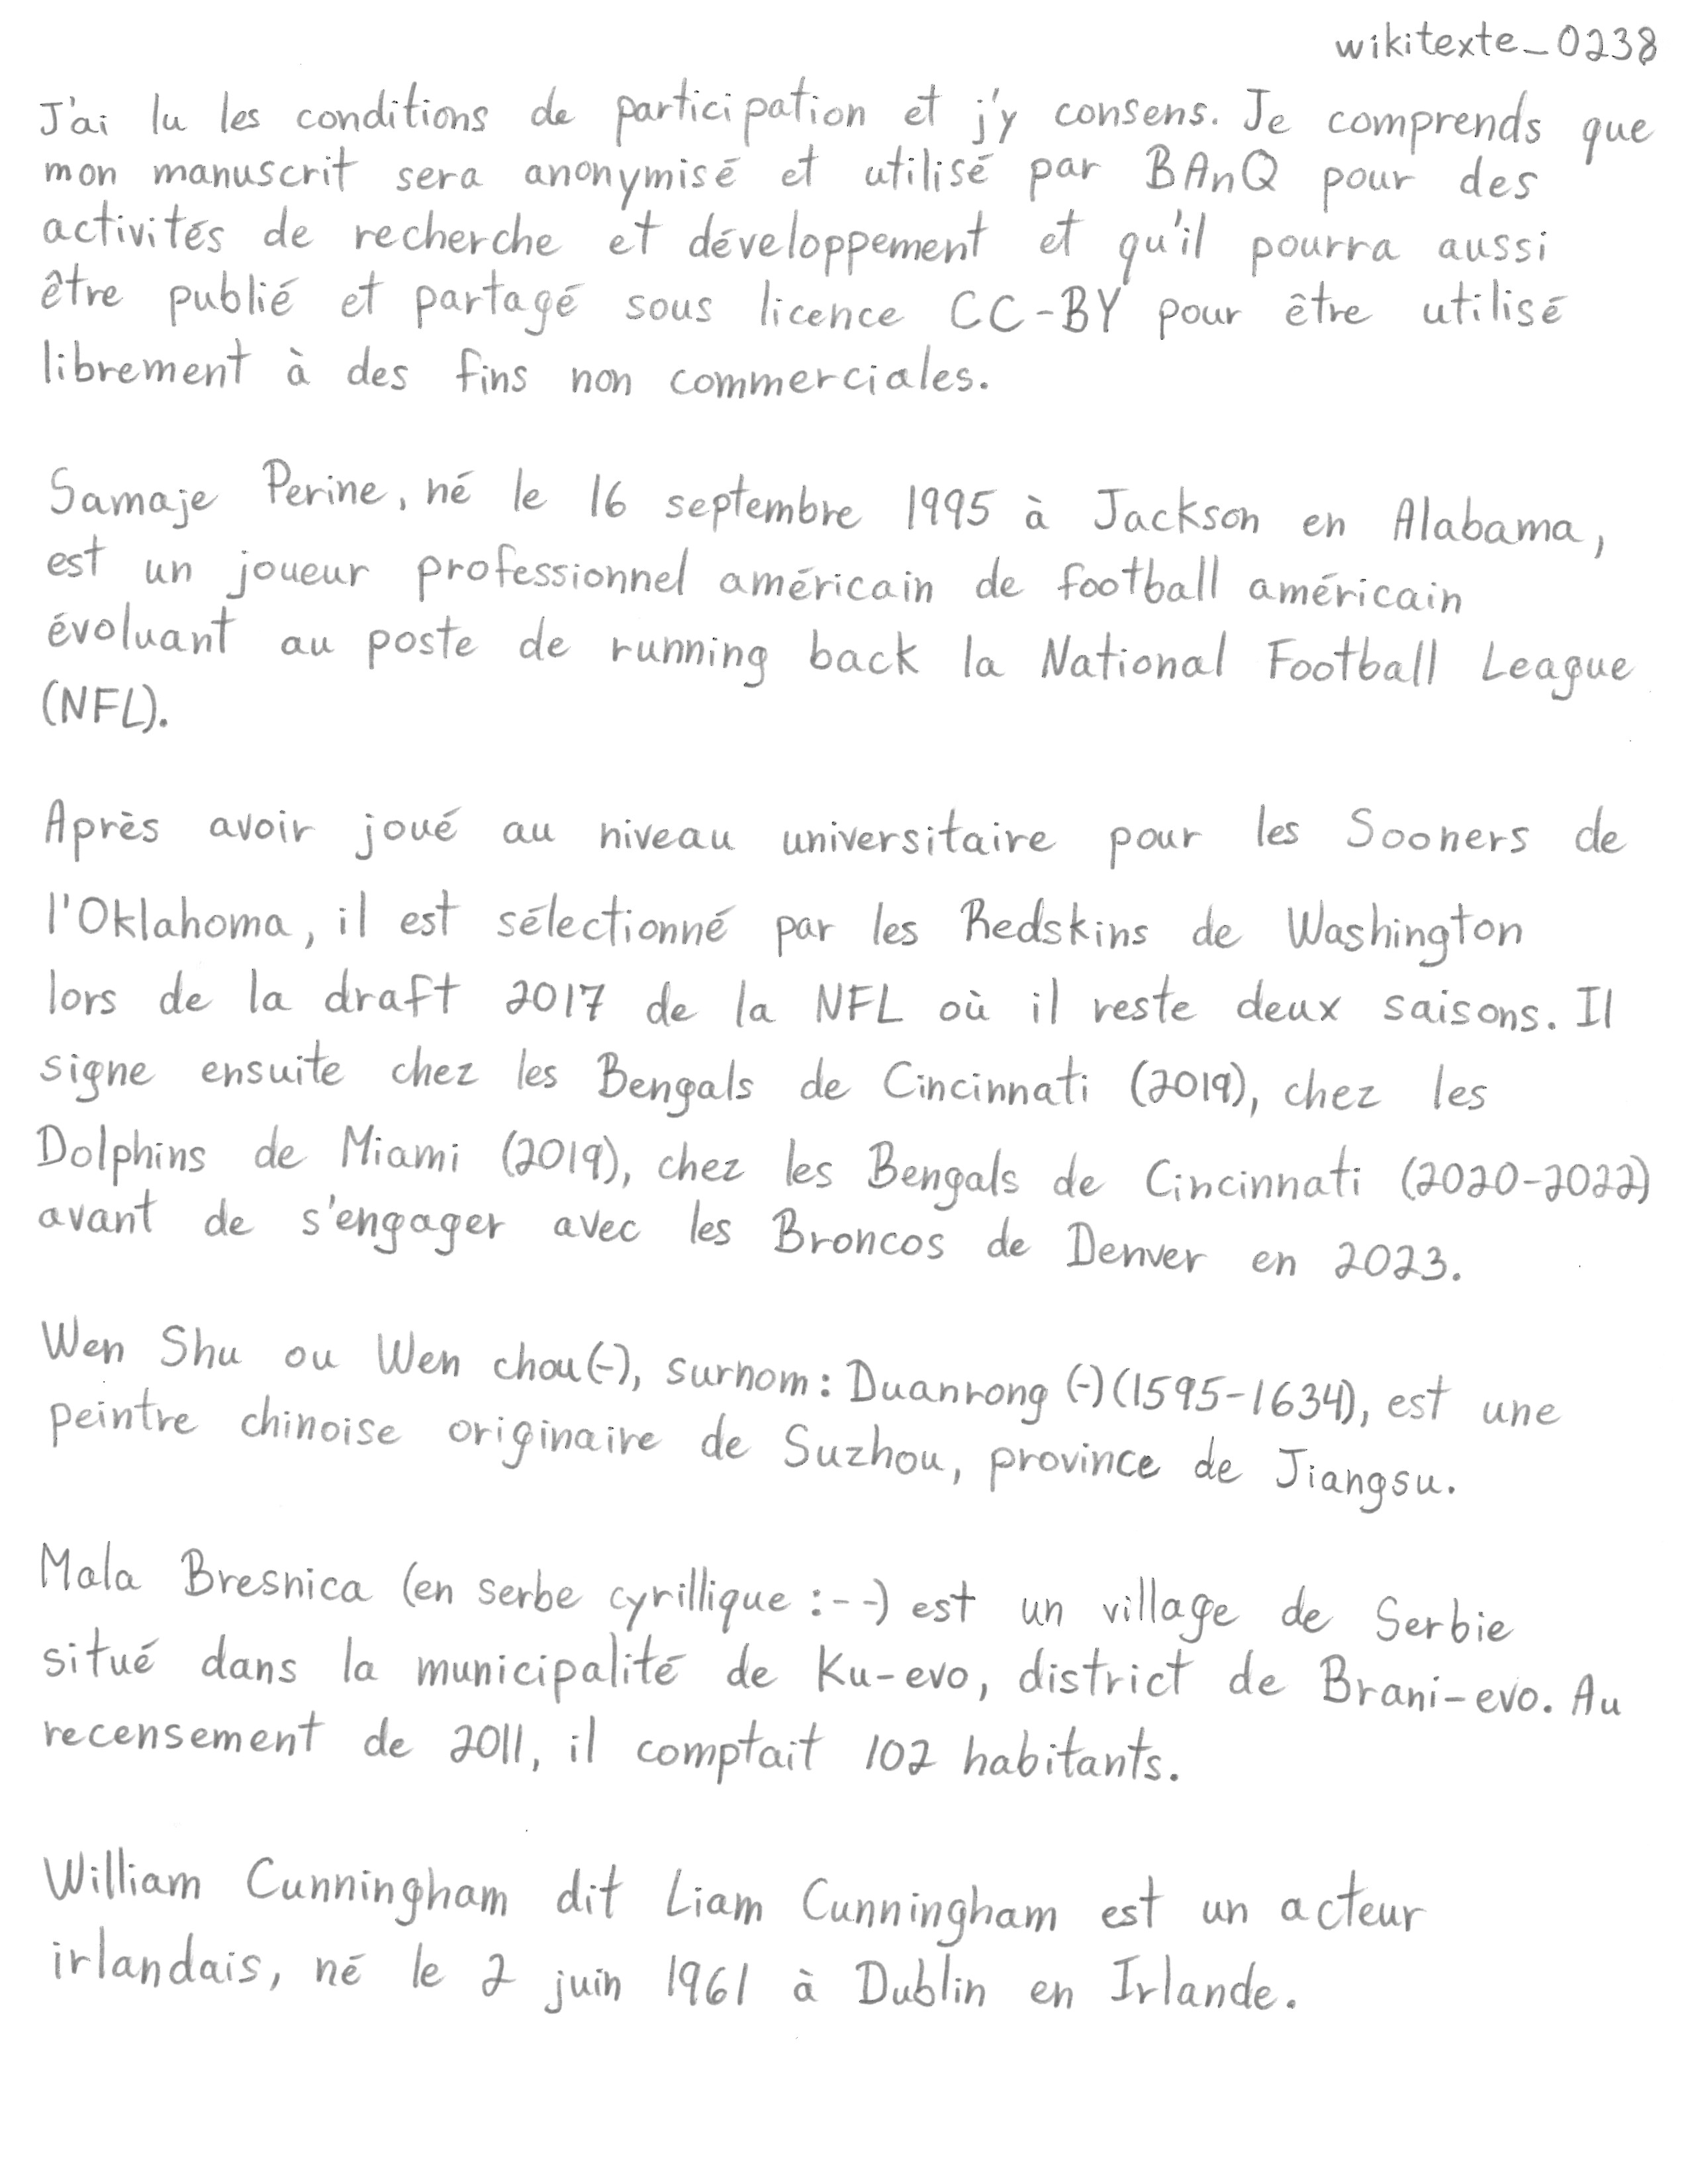 wikitexte_0238
J'ai lu les conditions de participation et j'y consens. Je comprends que
mon manuscrit sera anonymisé et utilisé par BAnQ pour des
activités de recherche et développement et qu'il pourra aussi
être publié et partagé sous licence CC-BY pour être utilisé
librement à des fins non commerciales.
Samaje Perine, né le 16 septembre 1995 à Jackson en Alabama,
est un joueur professionnel américain de football américain
évoluant au poste de running back la National Football League
(NFL).
Après avoir joué au niveau universitaire pour les Sooners de
l'Oklahoma, il est sélectionné par les Redskins de Washington
lors de la draft 2017 de la NFL où il reste deux saisons. Il
signe ensuite chez les Bengals de Cincinnati (2019), chez les
Dolphins de Miami (2019), chez les Bengals de Cincinnati (2020-2022)
avant de s'engager avec les Broncos de Denver en 2023.
Wen Shu ou Wen chou(-), surnom: Duanrong (-)(1595-1634), est une
peintre chinoise originaire de Suzhou, province de Jiangsu.
Mala Bresnica (en serbe cyrillique :--) est un village de Serbie
situé dans la municipalité de Ku-evo, district de Brani-evo. Au
recensement de 2011, il comptait 102 habitants.
William Cunningham dit Liam Cunningham est un acteur
irlandais, né le 2 juin 1961 à Dublin en Irlande.